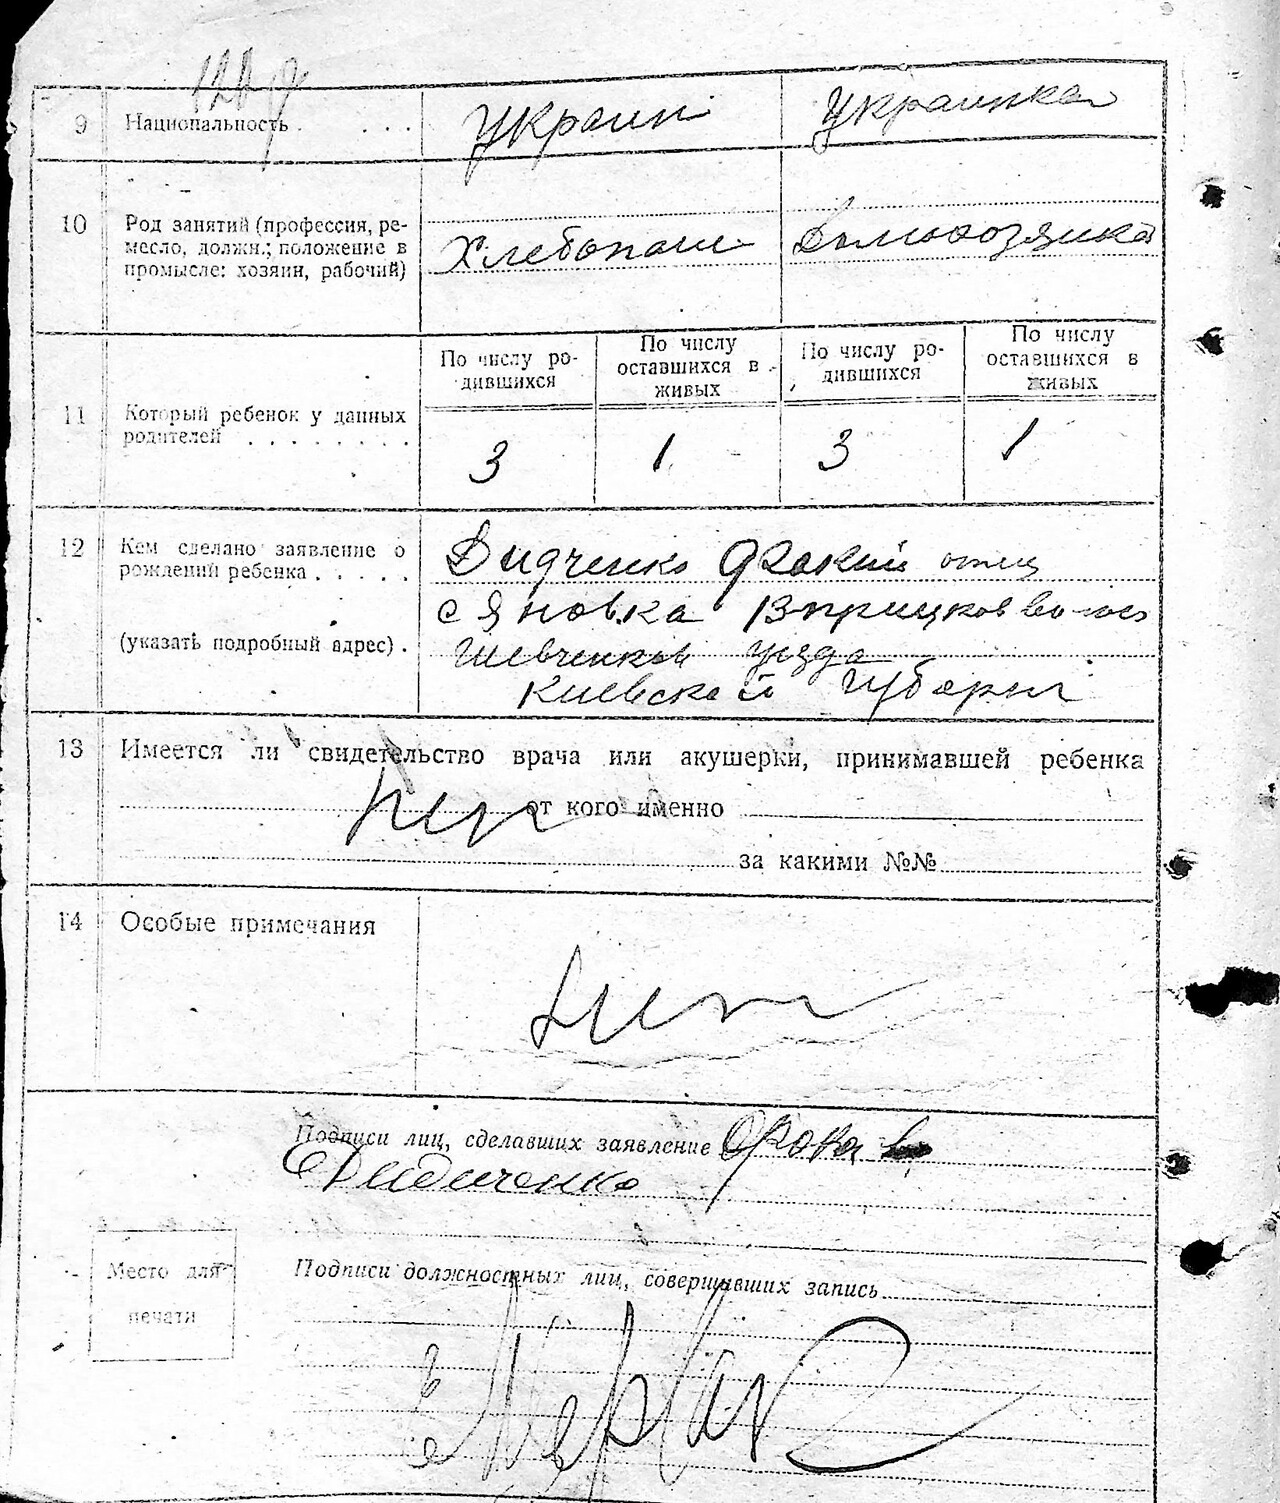 9 Национальность . . . . украин украинка
10 Род занятий (профессия, ре-
месло, должн.; положение в
промысле: хозяин, рабочий)
Хлебопаш Домохозяика
По числу ро-
дившихся
По числу
оставшихся в
живых
По числу ро-
дившихся
По числу
оставшихся в
живых
11 Который ребенок у данных
родителей . . . . . . . .
3 1 3 1
12 Кем сделано заявление о
рождении ребенка . . . . .
(указать подробный адрес) .
Дидченко Фокий отец
с Яновка
Шевченков уезда
Киевской губерни
13 Имеется ли свидетельство врача или акушерки, принимавшей ребенка
нет от кого именно
за какими №№
14 Особые примечания
нет
Подписи лиц, сделавших заявление Фока
Дидиченко
Место для
печати
Подписи должностных лиц, совершивших запись